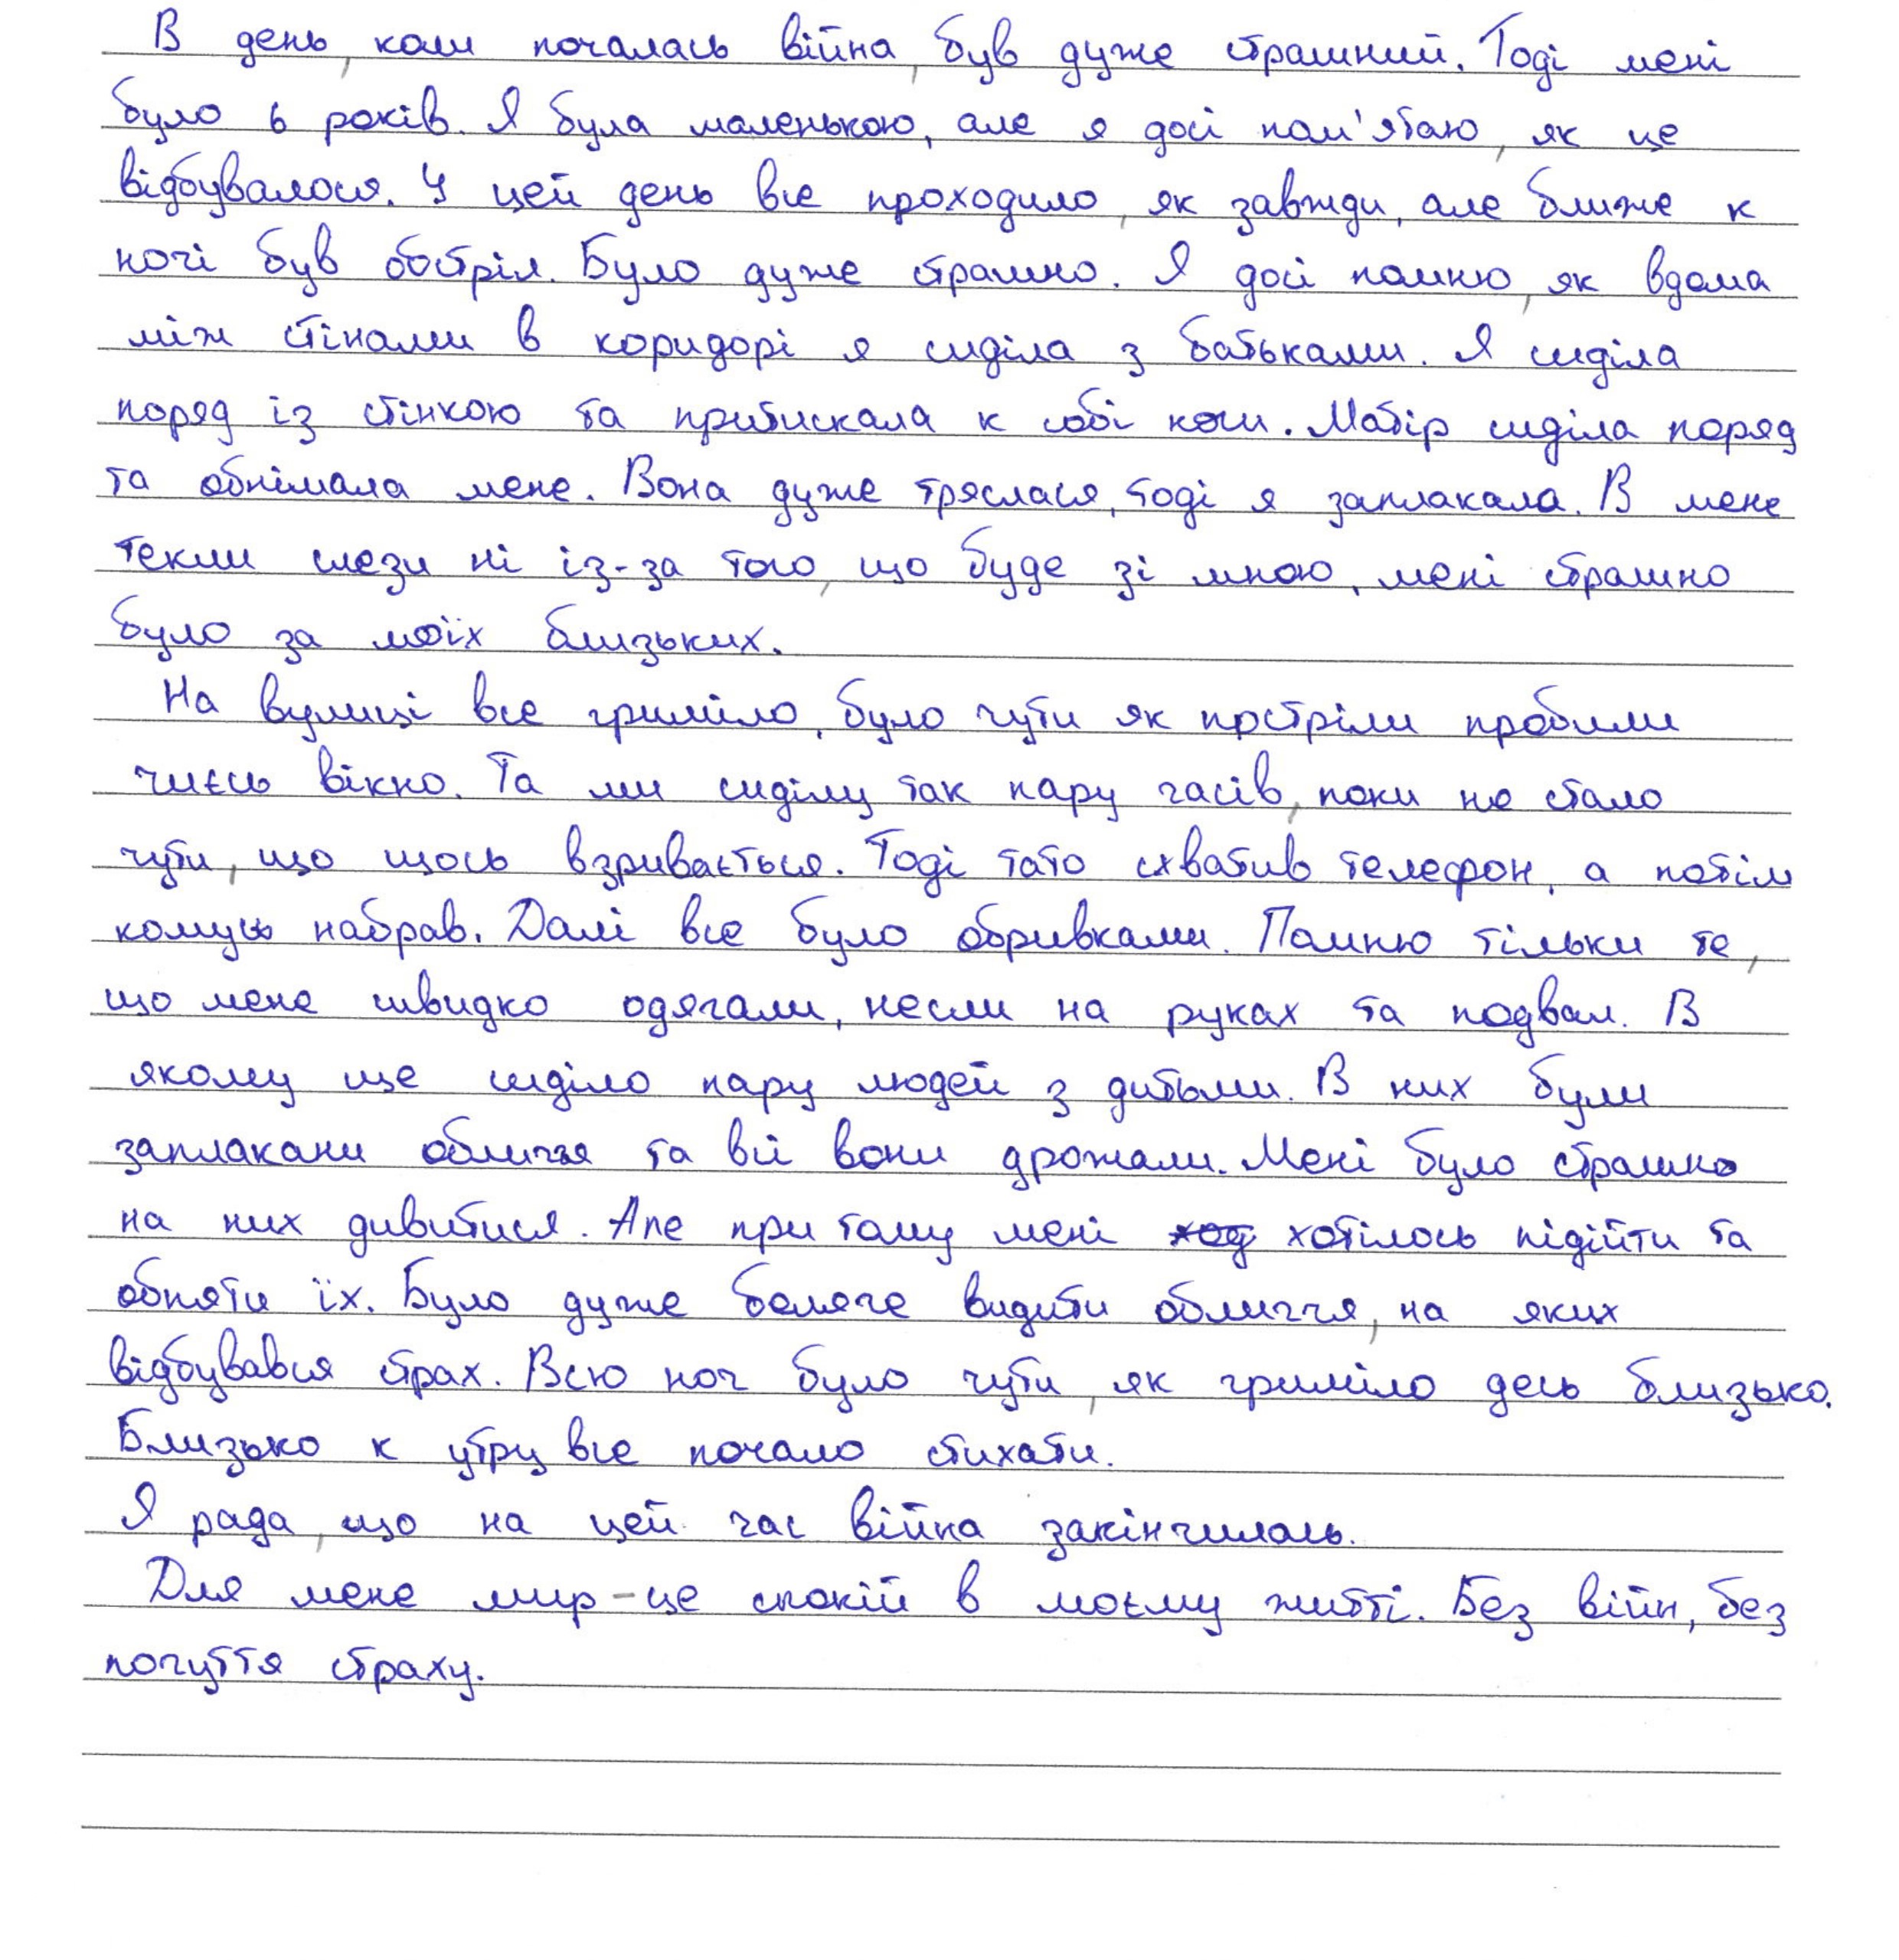 В день, коли почалась війна, був дуже страшний. Тоді мені
було 6 років. Я була маленькою, але я досі пам'ятаю, як це
відбувалося. У цей день все проходило, як завжди, але ближе к
ночі був обстріл. Було дуже страшно. Я досі помню, як вдома
між стінами в коридорі я сиділа з батьками. Я сиділа
поряд із стінкою та притискала к собі ноги. Матір сиділа поряд
та обнімала мене. Вона дуже тряслася, тоді я заплакала. В мене
текли слези ні із-за того, що буде зі мною, мені страшно
було за моїх близьких.
На вулиці все гриміло, було чути як постріли пробили
чиєсь вікно. Та ми сиділи так пару часів, поки не стало
чути, що щось взривається. Тоді тато схватив телефон, а потім
комусь набрав. Далі все було обривками. Помню тільки те,
що мене швидко одягали, несли на руках та подвал. В
якому ще сиділо пару людей з дитьми. В них були
заплакани обличчя та всі вони дрожали. Мені було страшно
на них дивитися. Але при тому мені ход хотілось підійти та
обняти їх. Було дуже боляче видити обличчя, на яких
відбувався страх. Всю ноч було чути, як гриміло десь близько.
Близько к утру все почало стихати.
Я рада, що на цей час війна закінчилась.
Для мене мир - це спокій в моєму житті. Без війн, без
почуття страху.